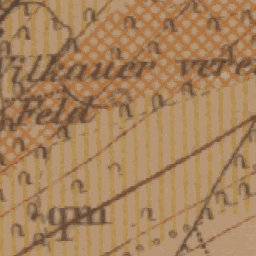 Wilkauer vere
Feld
qm